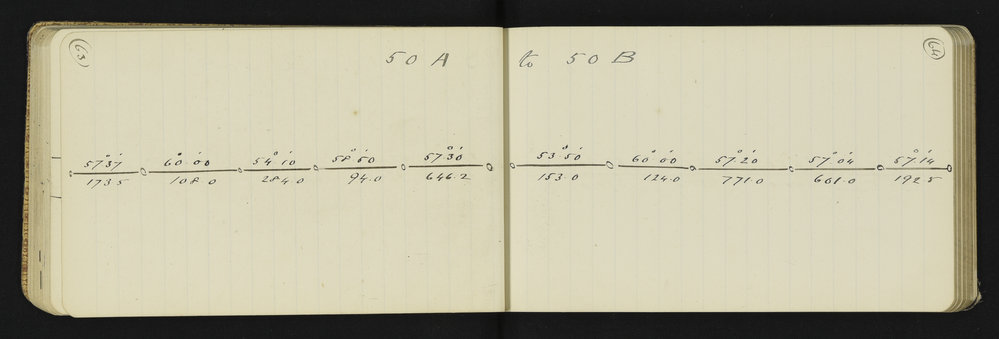 63
64
50 A to 50 B
57°37' 60°00' 54°10' 58°50' 57°30' 53°50' 60°00' 57°20' 57°04' 57°14'
173.5 108.0 284.0 94.0 646.2 153.0 124.0 771.0 601.0 192.5